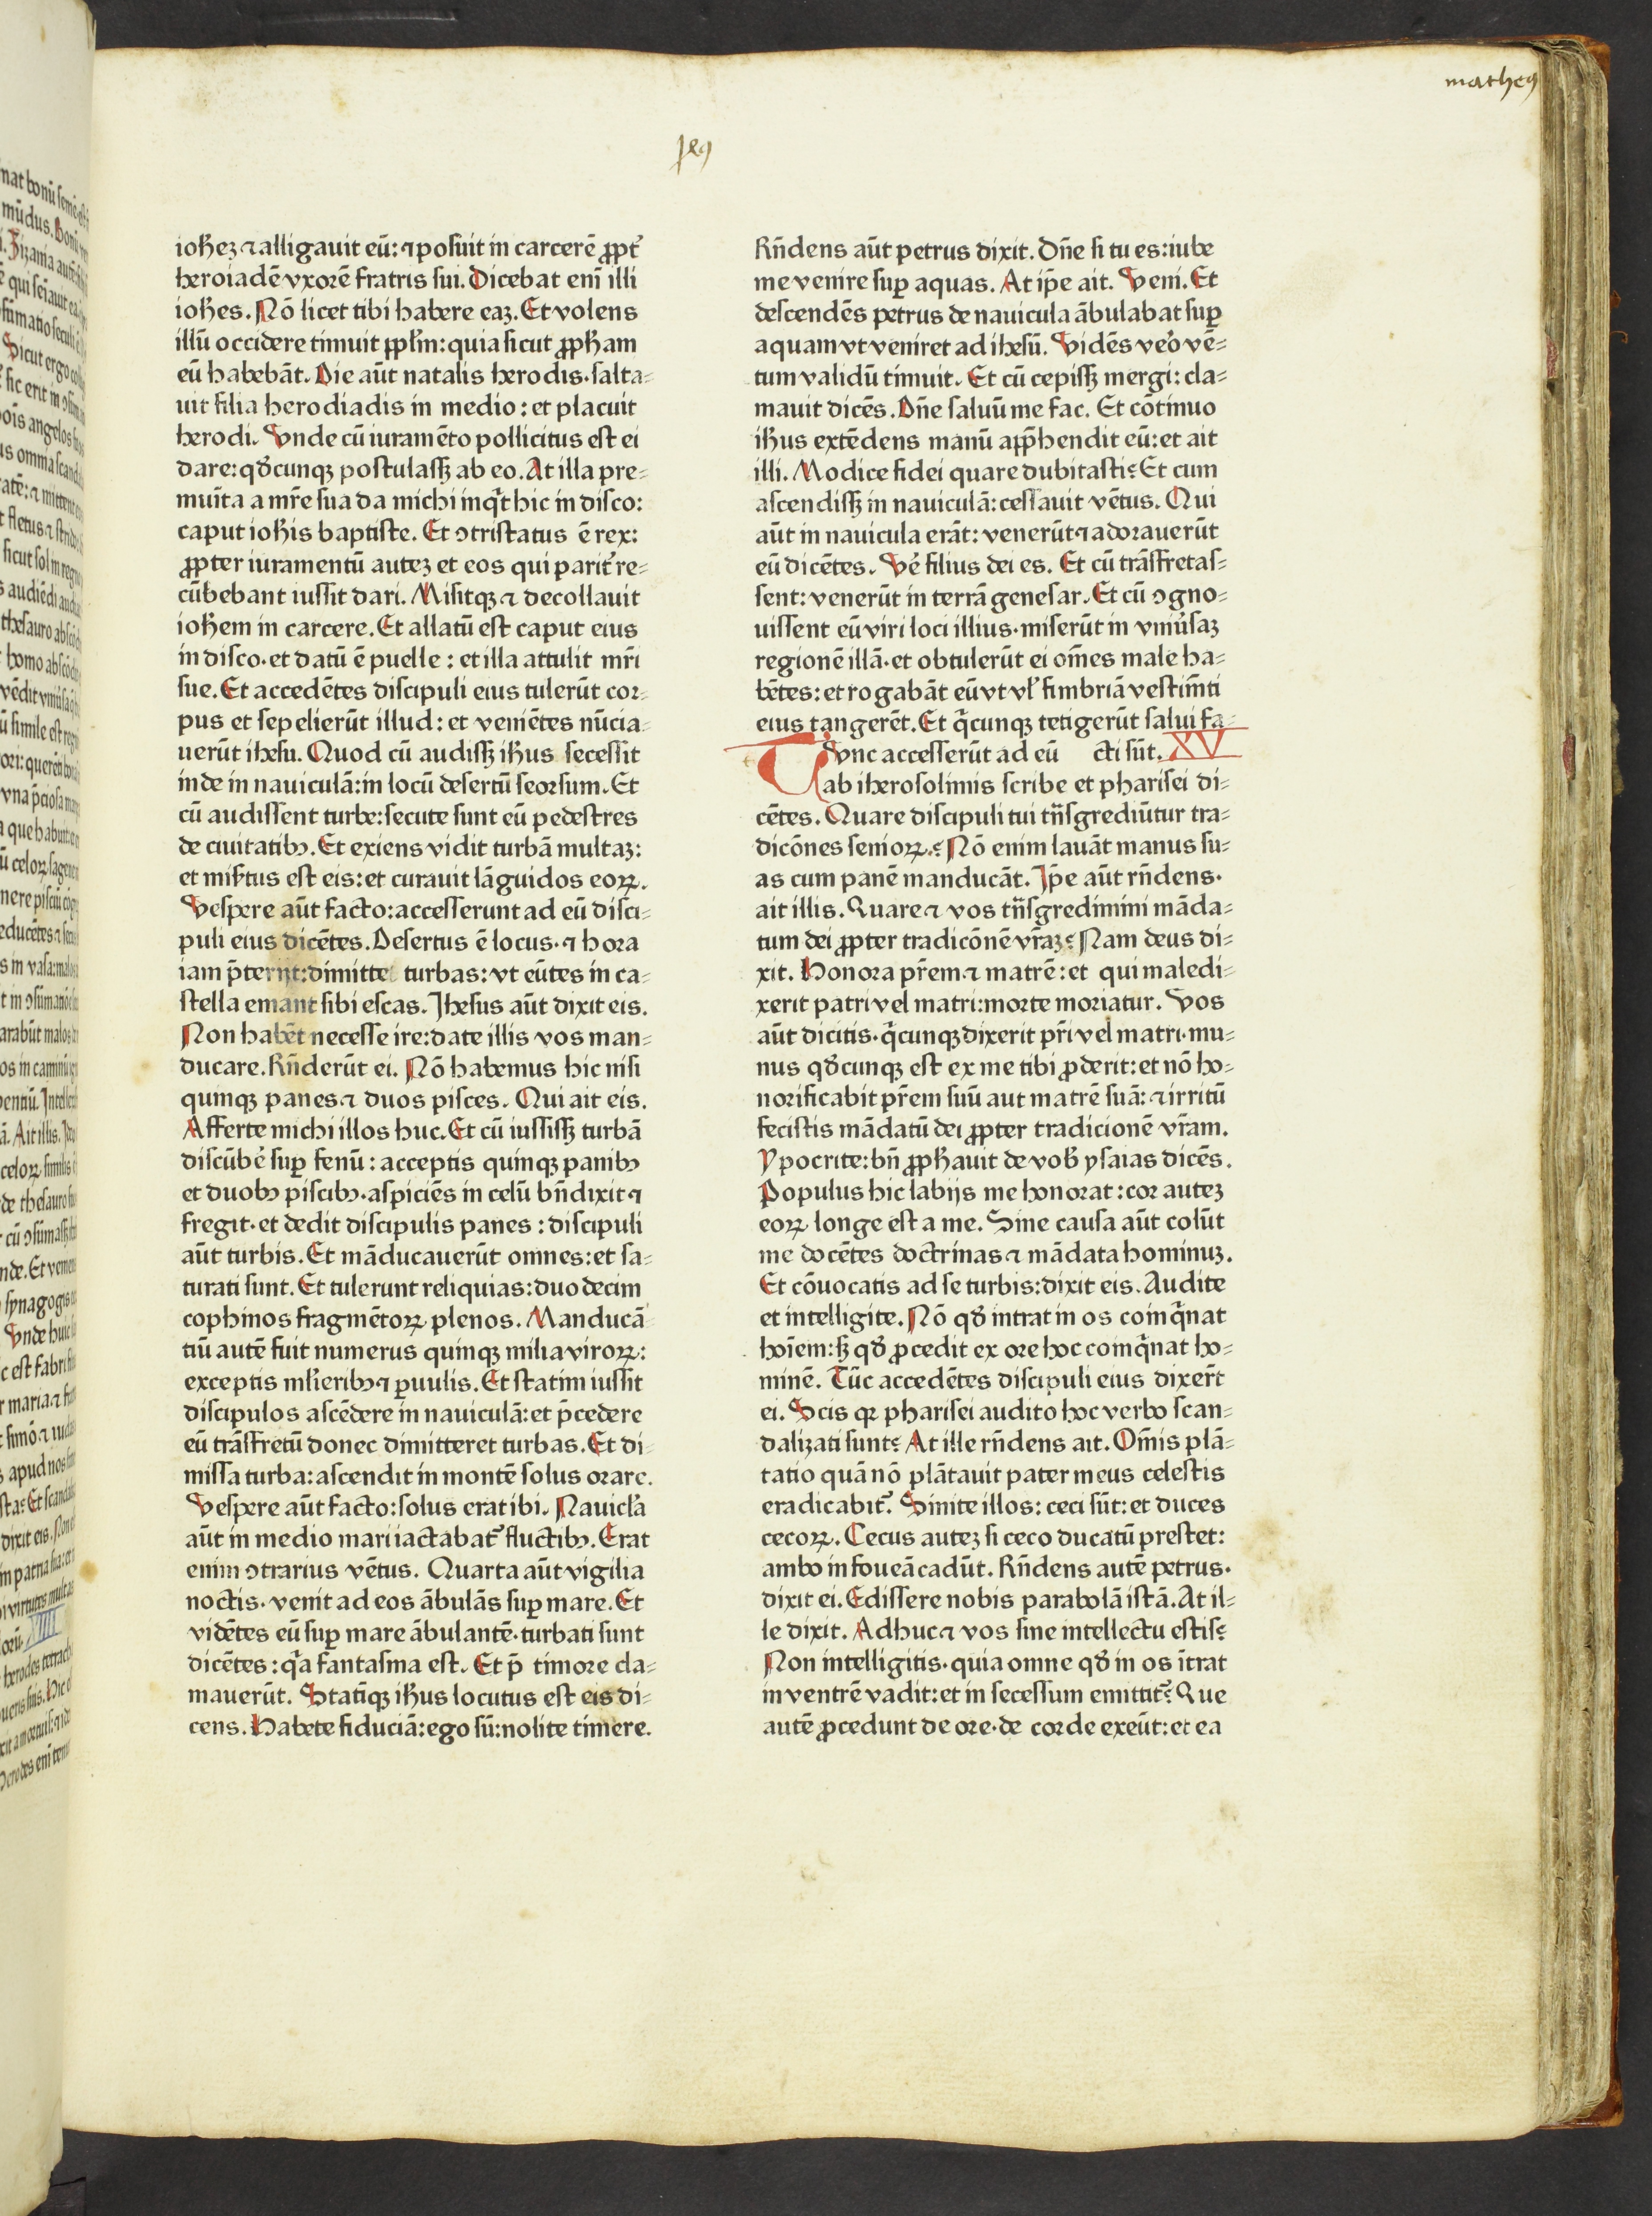 matheꝰ
iohez ⁊ alligauit eū: ⁊ posuit in carcerē ꝓpt᷑
heroiadē vxorē fratris sui. Dicebat eni illi
iohes. Nō licet tibi habere eaz. Et volens
illū occidere timuit ppl̄m: quia sicut ꝓpham
eū habebāt. Die aūt natalis herodis· salta-
uit filia herodiadis in medio: et placuit
herodi. Vnde cū iuramēto pollicitus est ei
dare: qd̄cunqꝫ postulassꝫ ab eo. At illa pre-
muīta a mr̄e sua da michi inqͥt hic in disco:
caput ioh̄is baptiste. Et ↄtristatus ē rex:
ꝓpter iuramentū autez et eos qui parit᷑ re-
cūbebant iussit dari. Misitqꝫ ⁊ decollauit
iohem in carcere. Et allatū est caput eius
in disco· et datū ē puelle: et illa attulit mr̄i
sue. Et accedētes discipuli eius tulerūt cor-
pus et sepelierūt illud: et veniētes nūcia-
uerūt ihesu. Quod cū audissꝫ ihus secessit
inde in nauiculā: in locū desertū seorsum. Et
cū audissent turbe: secute sunt eū pedestres
de ciuitatibꝰ. Et exiens vidit turbā multaz:
et mis̄tus est eis: et curauit lāguidos eoꝝ.
Vespere aūt facto: accesserunt ad eū disci-
puli eius dicētes. Desertus ē locus· ⁊ hora
iam p̄terijt: dimitte turbas: vt eūtes in ca-
stella emant sibi escas. Jhesus aūt dixit eis.
Non habēt necesse ire: date illis vos man-
ducare. Rn̄derūt ei. Nō habemus hic nisi
quinqꝫ panes ⁊ duos pisces. Qui ait eis.
Afferte michi illos huc. Et cū iussissꝫ turbā
discūbe᷑ suꝑ fenū: acceptis quinqꝫ panibꝰ
et duobꝰ piscibꝰ· aspiciēs in celū bn̄dixit ⁊
fregit· et dedit discipulis panes: discipuli
aūt turbis. Et māducauerūt omnes: et sa-
turati sunt. Et tulerunt reliquias: duodecim
cophinos fragmētoꝝ plenos. Manducā
tiū autē fuit numerus quinqꝫ milia viroꝝ:
exceptis ml̄ieribꝰ ⁊ ꝑuulis. Et statim iussit
discipulos ascēdere in nauiculā: et p̄cedere
eū trāsfretū donec dimitteret turbas. Et di-
missa turba: ascendit in montē solus orare.
Vespere aūt facto: solus erat ibi. Nauicl̄a
aūt in medio mari iactabat᷑ fluctibꝰ. Erat
enim ↄtrarius vētus. Quarta aūt vigilia
noctis· venit ad eos ābulās suꝑ mare. Et
vidētes eū suꝑ mare ābulantē· turbati sunt
dicētes: qͣa fantasma est. Et p̄ timore cla-
mauerūt. Statīqꝫ ihus locutus est eis di-
cens. Habete fiduciā: ego sū: nolite timere.
Rn̄dens aūt petrus dixit. Dn̄e si tu es: iube
me venire suꝑ aquas. At ip̄e ait. Veni. Et
descendēs petrus de nauicula ābulabat suꝑ
aquam vt veniret ad ihesū. Vidēs ve᷑o vē-
tum validū timuit. Et cū cepissꝫ mergi: cla-
mauit dicēs. Dn̄e saluū me fac. Et cōtinuo
ihus extēdens manū app̄hendit eū: et ait
illi. Modice fidei quare dubitasti? Et cum
ascendissꝫ in nauiculā: cessauit vētus. Qui
aūt in nauicula erāt: venerūt ⁊ adorauerūt
eū dicētes. Ve᷑ filius dei es. Et cū trāsfretas-
sent: venerūt in terrā genesar. Et cū ↄgno-
uissent eū viri loci illius· miserūt in vniu᷑saz
regionē illā· et obtulerūt ei om̄es male ha-
bētes: et rogabāt eū vt vl᷑ fimbriā vestim̄ti
eius tangerēt. Et qͥcunqꝫ tetigerūt salui fa-
Tvnc accesserūt ad eū cti sūt. XV
ab iherosolimis scribe et pharisei di-
cētes. Quare discipuli tui tn̄sgrediūtur tra-
dicōnes senioꝝ.? Nō enim lauāt manus su-
as cum panē manducāt. Jp̄e aūt rn̄dens·
ait illis. Quare ⁊ vos tn̄sgredimini māda-
tum dei ꝓpter tradicōnē vr̄az? Nam deus di-
xit. Honora pr̄em ⁊ matrē: et qui maledi-
xerit patri vel matri: morte moriatur. Vos
aūt dicitis· qͥcunqꝫ dixerit pr̄i vel matri· mu-
nus qd̄cunqꝫ est ex me tibi ꝓderit: et nō ho-
norificabit pr̄em suū aut matrē suā: ⁊ irritū
fecistis mādatū dei ꝓpter tradicionē vr̄am.
Ypocrite: bn̄ ꝓphauit de vob̄ ysaias dicēs.
Populus hic labijs me honorat: cor autez
eoꝝ longe est a me. Sine causa aūt colūt
me docētes doctrinas ⁊ mādata hominuz.
Et cōuocatis ad se turbis: dixit eis. Audite
et intelligite. Nō qd̄ intrat in os coinqͥnat
hoīem: sꝫ qd̄ ꝓcedit ex ore hoc coinqͥnat ho-
minē. Tūc accedētes discipuli eius dixer̄t
ei. Scis qꝛ pharisei audito hoc verbo scan-
dalizati sunt? At ille rn̄dens ait. Om̄is plā-
tatio quā nō plātauit pater meus celestis
eradicabit᷑. Sinite illos: ceci sūt: et duces
cecoꝝ. Cecus autez si ceco ducatū prestet:
ambo in foueā cadūt. Rn̄dens autē petrus·
dixit ei. Edissere nobis parabolā istā. At il-
le dixit. Adhuc ⁊ vos sine intellectu estis?
Non intelligitis· quia omne qd̄ in os ītrat
in ventrē vadit: et in secessum emittit᷑? Que
autē ꝓcedunt de ore· de corde exeūt: et ea